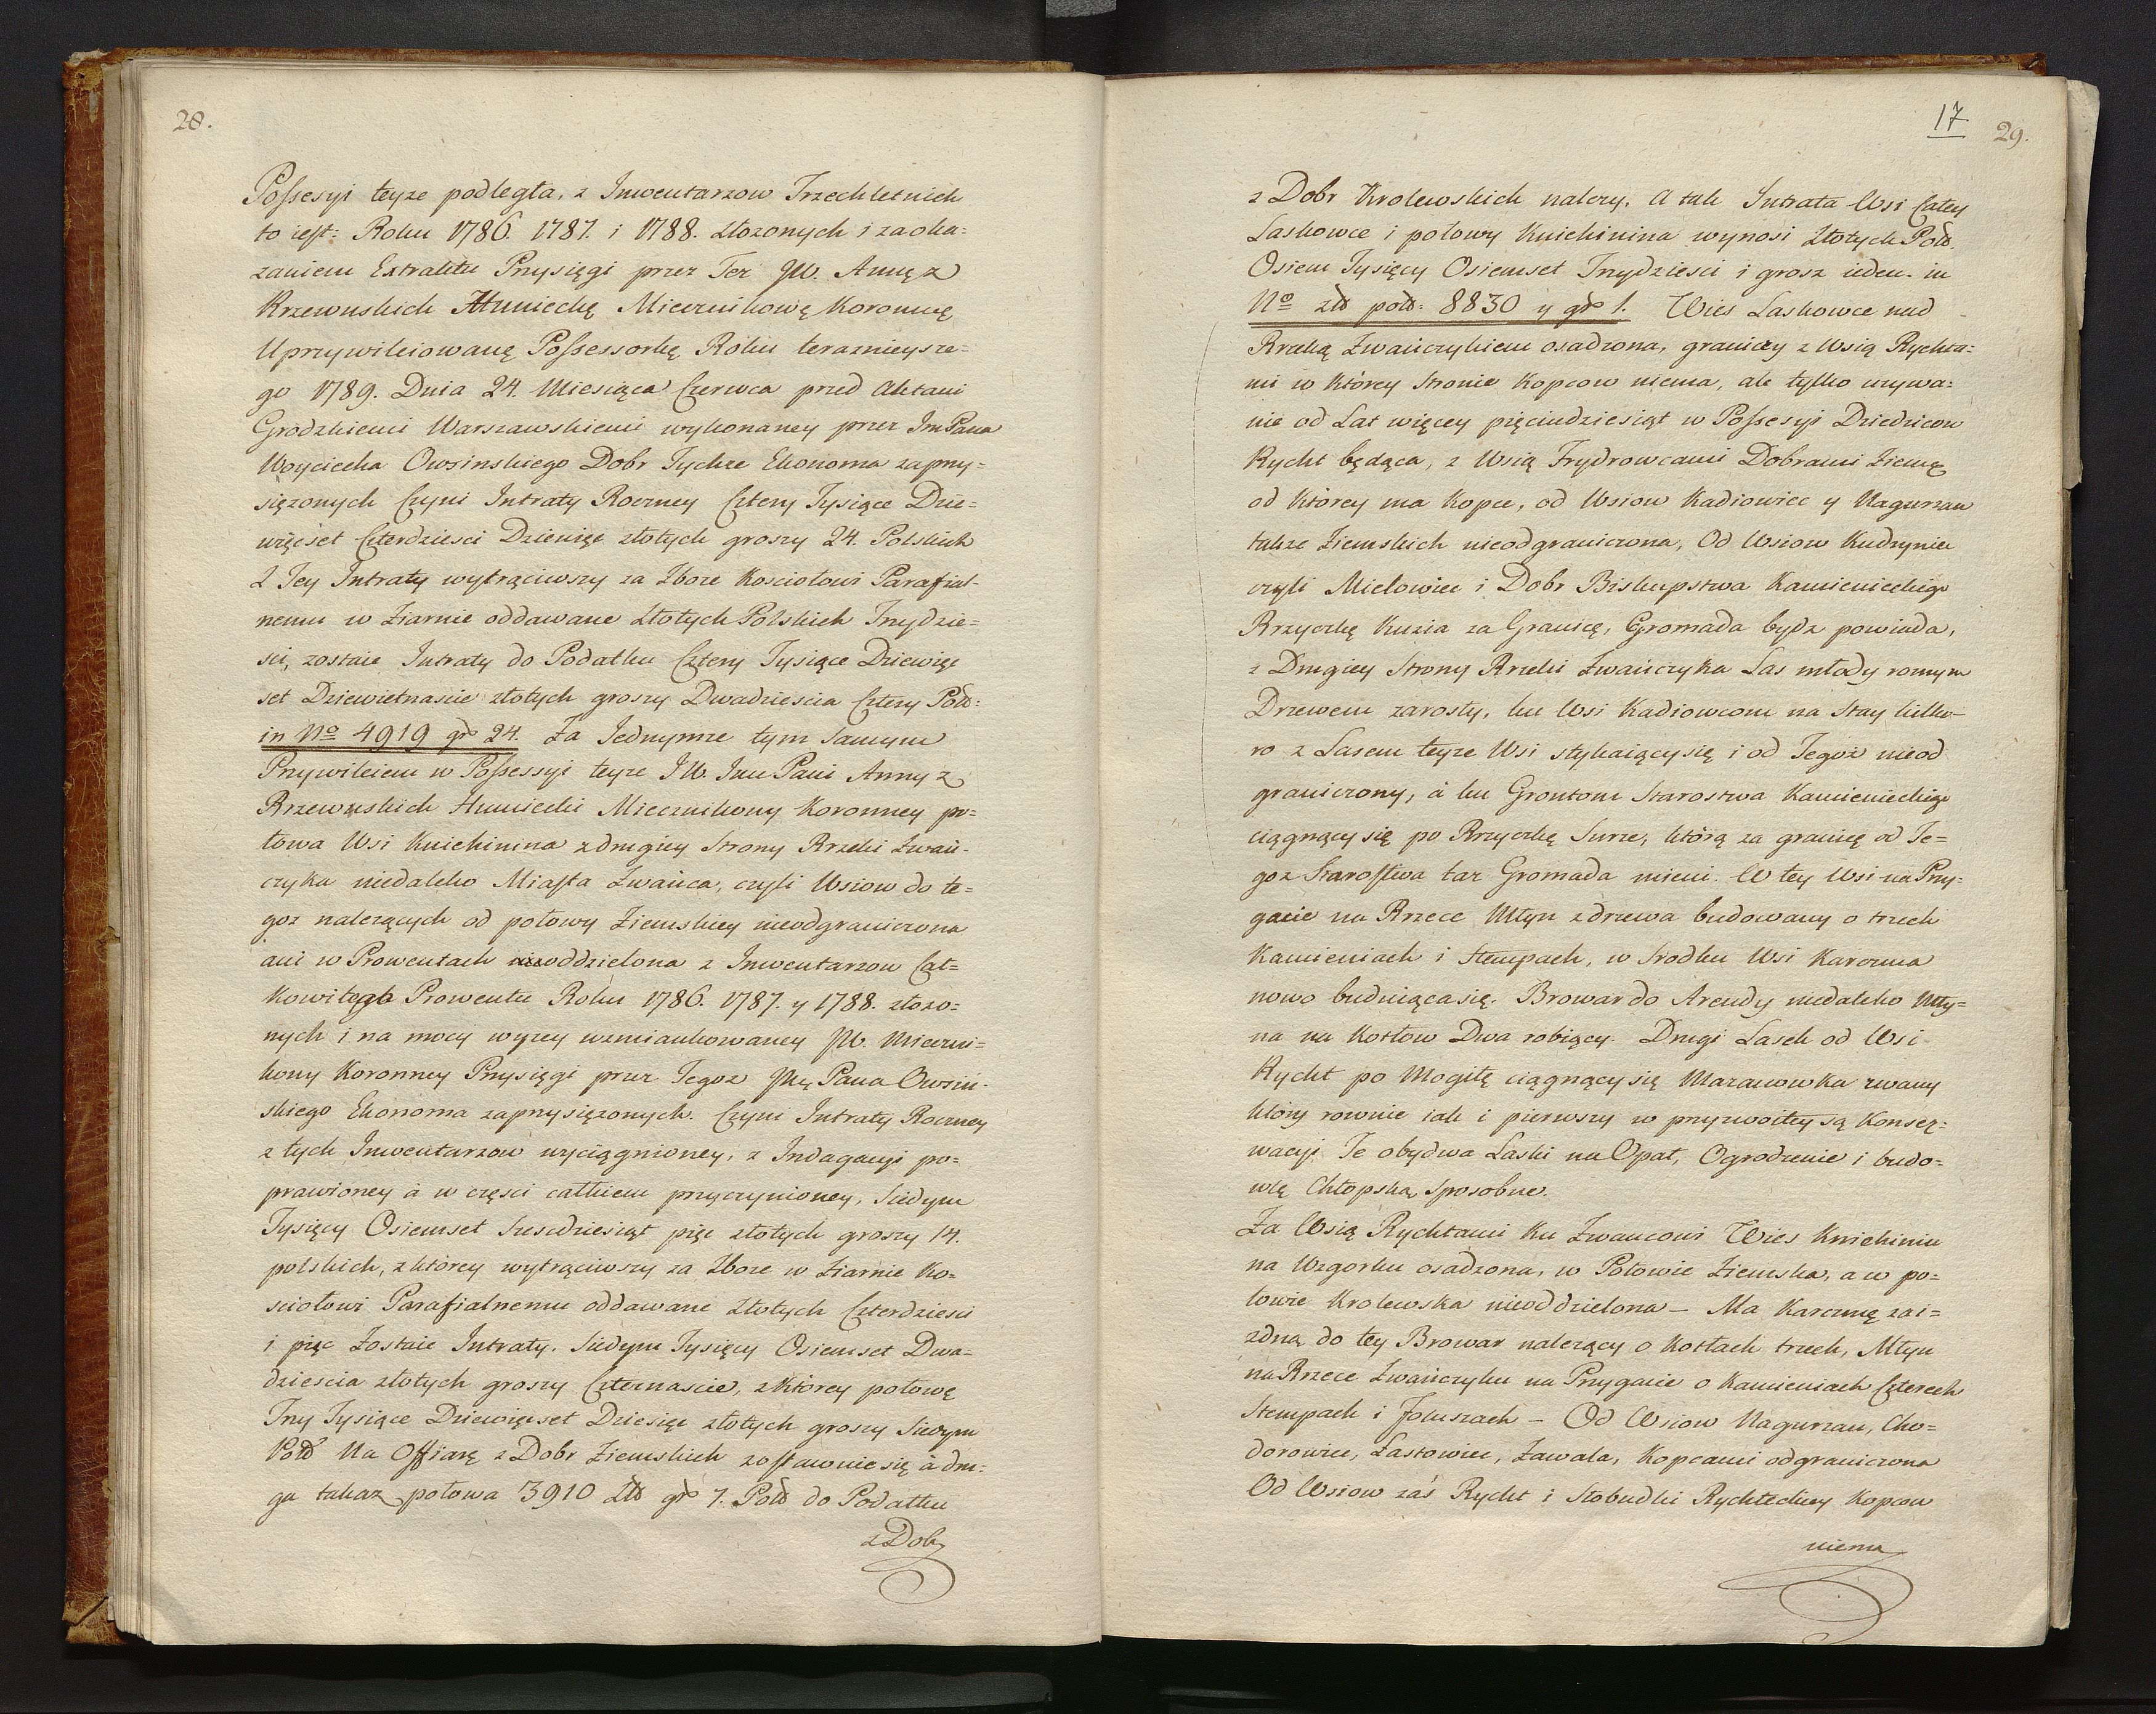 28.
Possesyi teyze podległa, z Inwentarzow Trzechletnich
to iest: Roku 1786. 1787. i 1788. złożonych i zaoka=
zaniem Extraktu Przysięgi przez Tez JW. Annę z
Rzewuskich Humiecką Miecznikową Koronną
Uprzywileiowaną Possessorkę Roku teraznieysze=
go 1789. Dnia 24. Miesiąca Czerwca przed Aktami
Grodzkiemi Warszawskiemi wykonaney przez Im Pana
Woyciecha Owsinskiego Dobr Tychze Ekonoma zaprzy=
siężonych Czyni Intraty Roczney Cztery Tysiące Dzie=
więcset Czterdziesci Dziewięc złotych groszy 24. Polskich
Z Tey Intraty wytrąciwszy za Zboze Kosciołowi Parafial=
nemu w Ziarnie oddawane Złotych Polskich Trzydzie=
sci, zostaie Intraty do Podatku Cztery Tysiące Dziewięc
set Dziewietnascie złotych groszy Dwadziescia Cztery Pols:
in No 4919 gr 24. Za Jednymze tym Samym
Przywileiem w Possessyi teyze J W. Jmc Pani Anny z
Rzewuskich Humiecki Miecznikowy Koronney po=
łowa Wsi Kniehinina z drugiey Strony Rzeki Zwań=
czyka niedaleko Miasta Zwańca, czyli Wsiow do te=
goz nalezących od połowy Ziemskiey nieodgraniczona
ani w Prowentach oddzielona z Inwentarzow Cał=
kowitego Prowentu Roku 1786. 1787. y 1788. złozo=
nych i na mocy wyzey wzmiankowaney JW. Mieczni=
kowy Koronney Przysięgi przez Tegoz Jmć Pana Owsin=
skiego Ekonoma zaprzysiężonych. Czyni Intraty Roczney
z tych Inwentarzow wyciągnioney, z Indagacyi po=
prawioney à w części całkiem przyczynioney, Siedym
Tysięcy Osiemset Szesdziesiąt pięc złotych groszy 14.
polskich, z ktorey wytrąciwszy za Zboze w Ziarnie Ko=
sciołowi Parafialnemu oddawane Złotych Czterdziesci
i pięc Zostaie Intraty. Siedym Tysięcy Osiemset Dwa=
dziescia złotych groszy Czternascie, z Ktorey połowę
Trzy Tysiące Dziewięcset Dziesięc złotych groszy Siedym
Pols Na Offiarę z Dobr Ziemskich zostawuie się à dru=
ga takaz połowa 3910 Złt gr 7. Pols do Podatku
z Dobr
17
29.
z Dobr Krolewskich nalezy. A tak Intrata Wsi Całey
Laskowce i połowy Kniehinina wynosi Złotych Pols.
Osiem Tysięcy Osiemset Trzydziesci i grosz ieden. in
No złt pols: 8830 y gr 1. Wies Laskowce nad
Rzeką Zwańczykiem osadzona, graniczy z Wsią Rychta=
mi w Ktorey Stronie Kopcow niema, ale tylko uzywa=
nie od Lat więcey pięciudziesiąt w Possesyi Dziedzicow
Rycht będąca, z Wsią Frydrowcami Dobrami Ziemę
od Ktorey ma Kopce, od Wsiow Kadiowiec y Nagurzan
takze Ziemskich nieodgraniczona, Od Wsiow Kudryniec
czyli Mielowiec i Dobr Biskupstwa Kamienieckiego
Rzyczkę Kuzia za Granicę, Gromada bydz powiada,
z Drugiey Strony Rzeki Zwańczyka Las młody roznym
Drzewem zarosły, ku Wsi Kadiowcom na Stay kilko=
ro z Lasem teyze Wsi stykaiący się i od Tegoz nieod
graniczony, à ku Grontom Starostwa Kamienieckiego
ciągnący się po Rzyczkę Surze, którą za granicę od Te=
goz Starostwa taz Gromada mieni. W tey Wsi na Przy=
gacie na Rzece Młyn z drzewa budowany o trzech
Kamieniach i Stempach, w Srodku Wsi Karczma
nowo buduiąca się. Browar do Arendy niedaleko Mły=
na na Kotłow Dwa robiący. Drugi Lasek od Wsi
Rycht po Mogiłę ciągnący się Mazanowka zwany
ktory rownie iak i pierwszy w przyzwoitey są Konser=
wacyi Te obydwa Laski na Opał, Ogrodzenie i budo=
wlę Chłopską Sposobne.
Za Wsią Rychtami Ku Zwancowi Wies Kniehinin
na Wzgorku osadzona, w Połowie Ziemska, a w po=
łowie Krolewska nieoddzielona - Ma Karczmę zai=
zdną do tey Browar nalezący o Kotłach trzech, Młyn
na Rzece Zwańczyku na Przygacie o Kamieniach Czterech
Stempach i Foluszach - Od Wsiow Nagurzan, Cho=
dorowiec, Łastowiec, Zawala, Kopcami odgraniczona
Od Wsiow zaś Rycht i Słobudki Rychteckiey Kopcow
niema